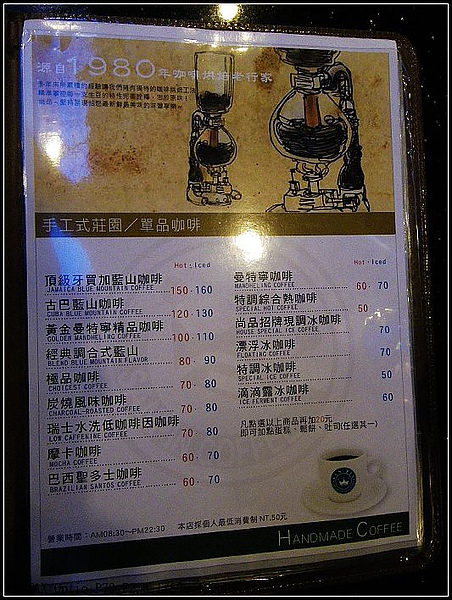 源自1980年咖啡烘焙老行家
手工式莊園／單品咖啡
Hot．Iced
頂級牙買加藍山咖啡
JAMAICA BLUE MOUNTAIN COFFEE 150．160
古巴藍山咖啡
CUBA BLUE MOUNTAIN COFFEE 120．130
黃金曼特寧精品咖啡
GOLDEN MANDHELING COFFEE 100．110
經典調合式藍山
BLEND BLUE MOUNTAIN FLAVOR 80．90
極品咖啡
CHOICEST COFFEE 70．80
炭燒風味咖啡
CHARCOAL-ROASTED COFFEE 70．80
瑞士水洗低咖啡因咖啡
LOW CAFFENINE COFFEE 70．80
摩卡咖啡
MOCHA COFFEE 60．70
巴西聖多士咖啡
BRAZILIAN SANTOS COFFEE 60．70
Hot．Iced
曼特寧咖啡
MANDHELING COFFEE 60．70
特調綜合熱咖啡
SPECIAL HOT COFFEE 50
尚品招牌現調冰咖啡
HOUSE SPECIAL ICE COFFEE 70
漂浮冰咖啡
FLOATING COFFEE 70
特調冰咖啡
SPECIAL ICE COFFEE 50
滴滴露冰咖啡
ICE FERMENT COFFEE 60
凡點選以上商品再加20元
即可加點蛋糕、鬆餅、吐司(任選其一)
營業時間：AM08:30~PM22:30
本店採個人最低消費制 NT.50元
HANDMADE COFFEE